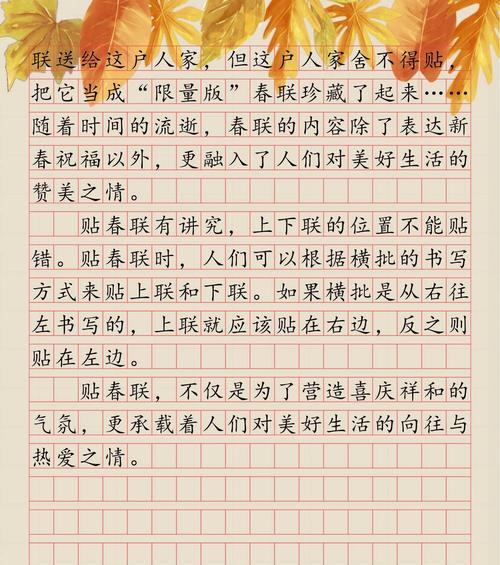 联送给这户人家，但这户人家舍不得贴，
把它当成“限量版”春联珍藏了起来……
随着时间的流逝，春联的内容除了表达新
春祝福以外，更融入了人们对美好生活的
赞美之情。
贴春联有讲究，上下联的位置不能贴
错。贴春联时，人们可以根据横批的书写
方式来贴上联和下联。如果横批是从右往
左书写的，上联就应该贴在右边，反之则
贴在左边。
贴春联，不仅是为了营造喜庆祥和的
气氛，更承载着人们对美好生活的向往与
热爱之情。